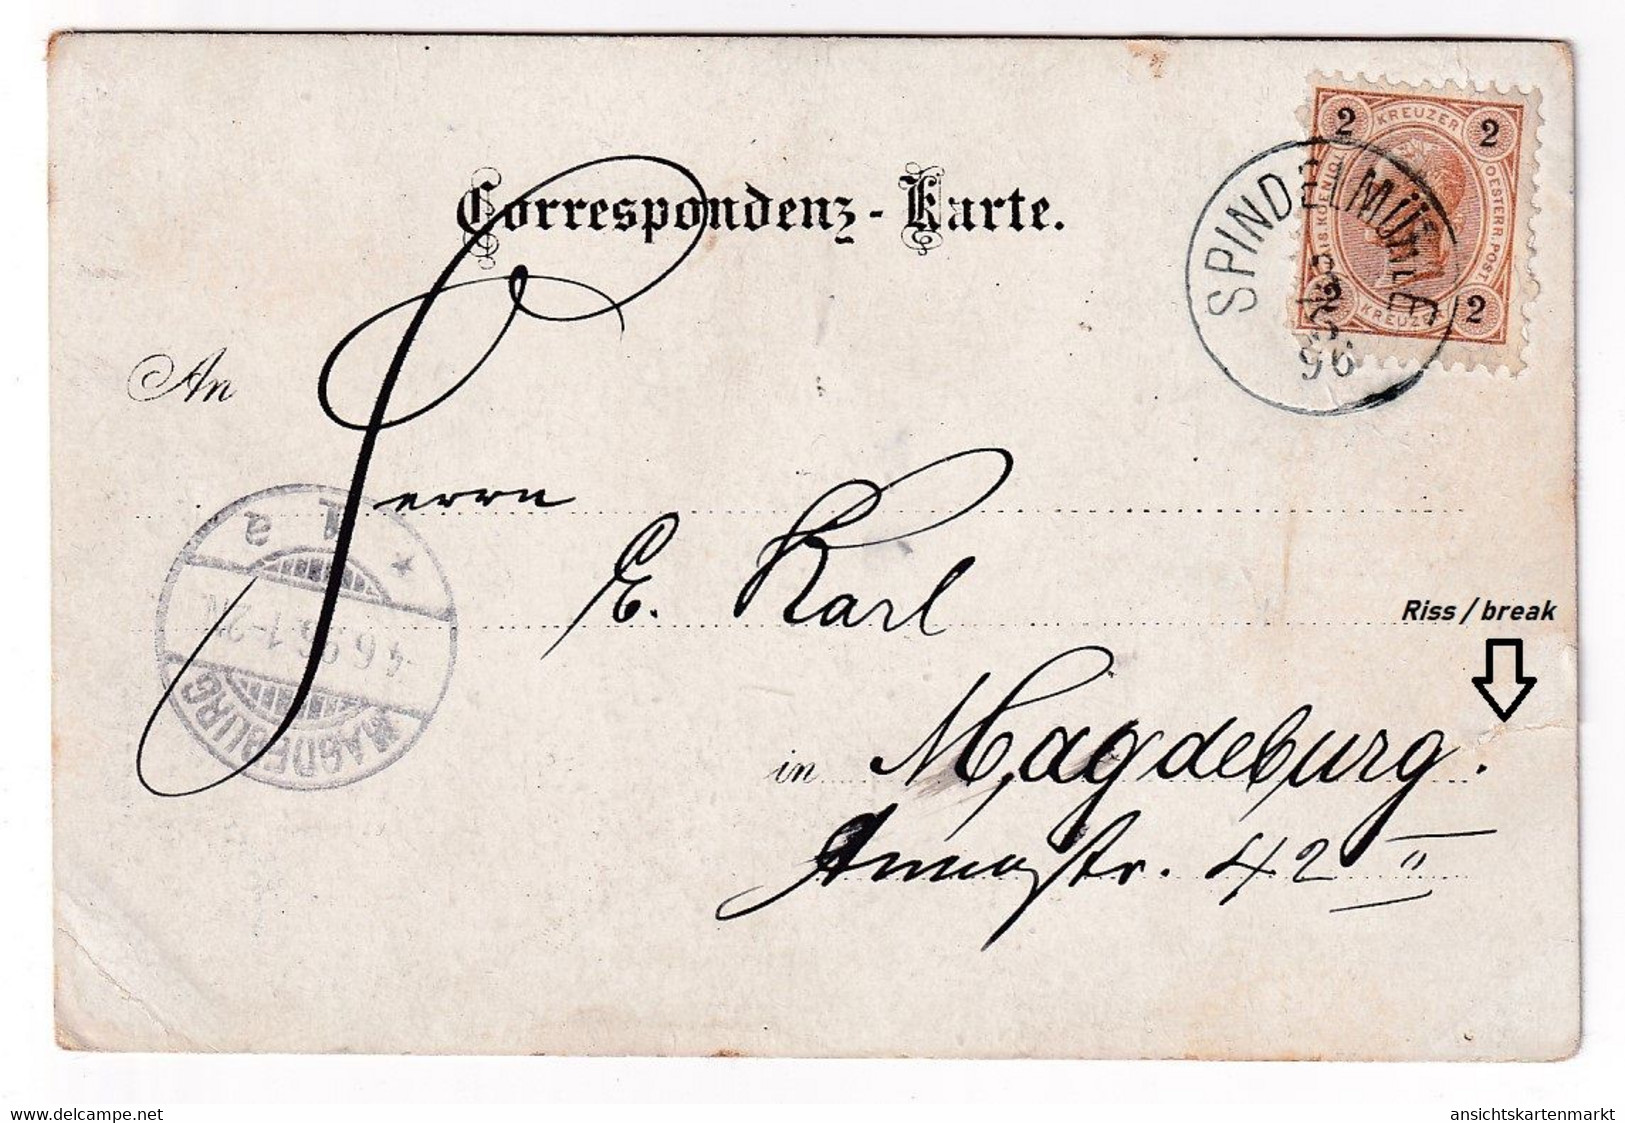 Correspondenz-Karte.
2 KREUZER 2
KAIS. KOENIGL. OESTERR. POST
2 KREUZER 2
SPINDELMÜHLE
96
An
Herrn
E. Karl
1 a
*
4.6.96.1-2N.
MAGDEBURG
Riss / break
in Magdeburg.
Annastr. 42 II
delcampe.net
ansichtskartenmarkt